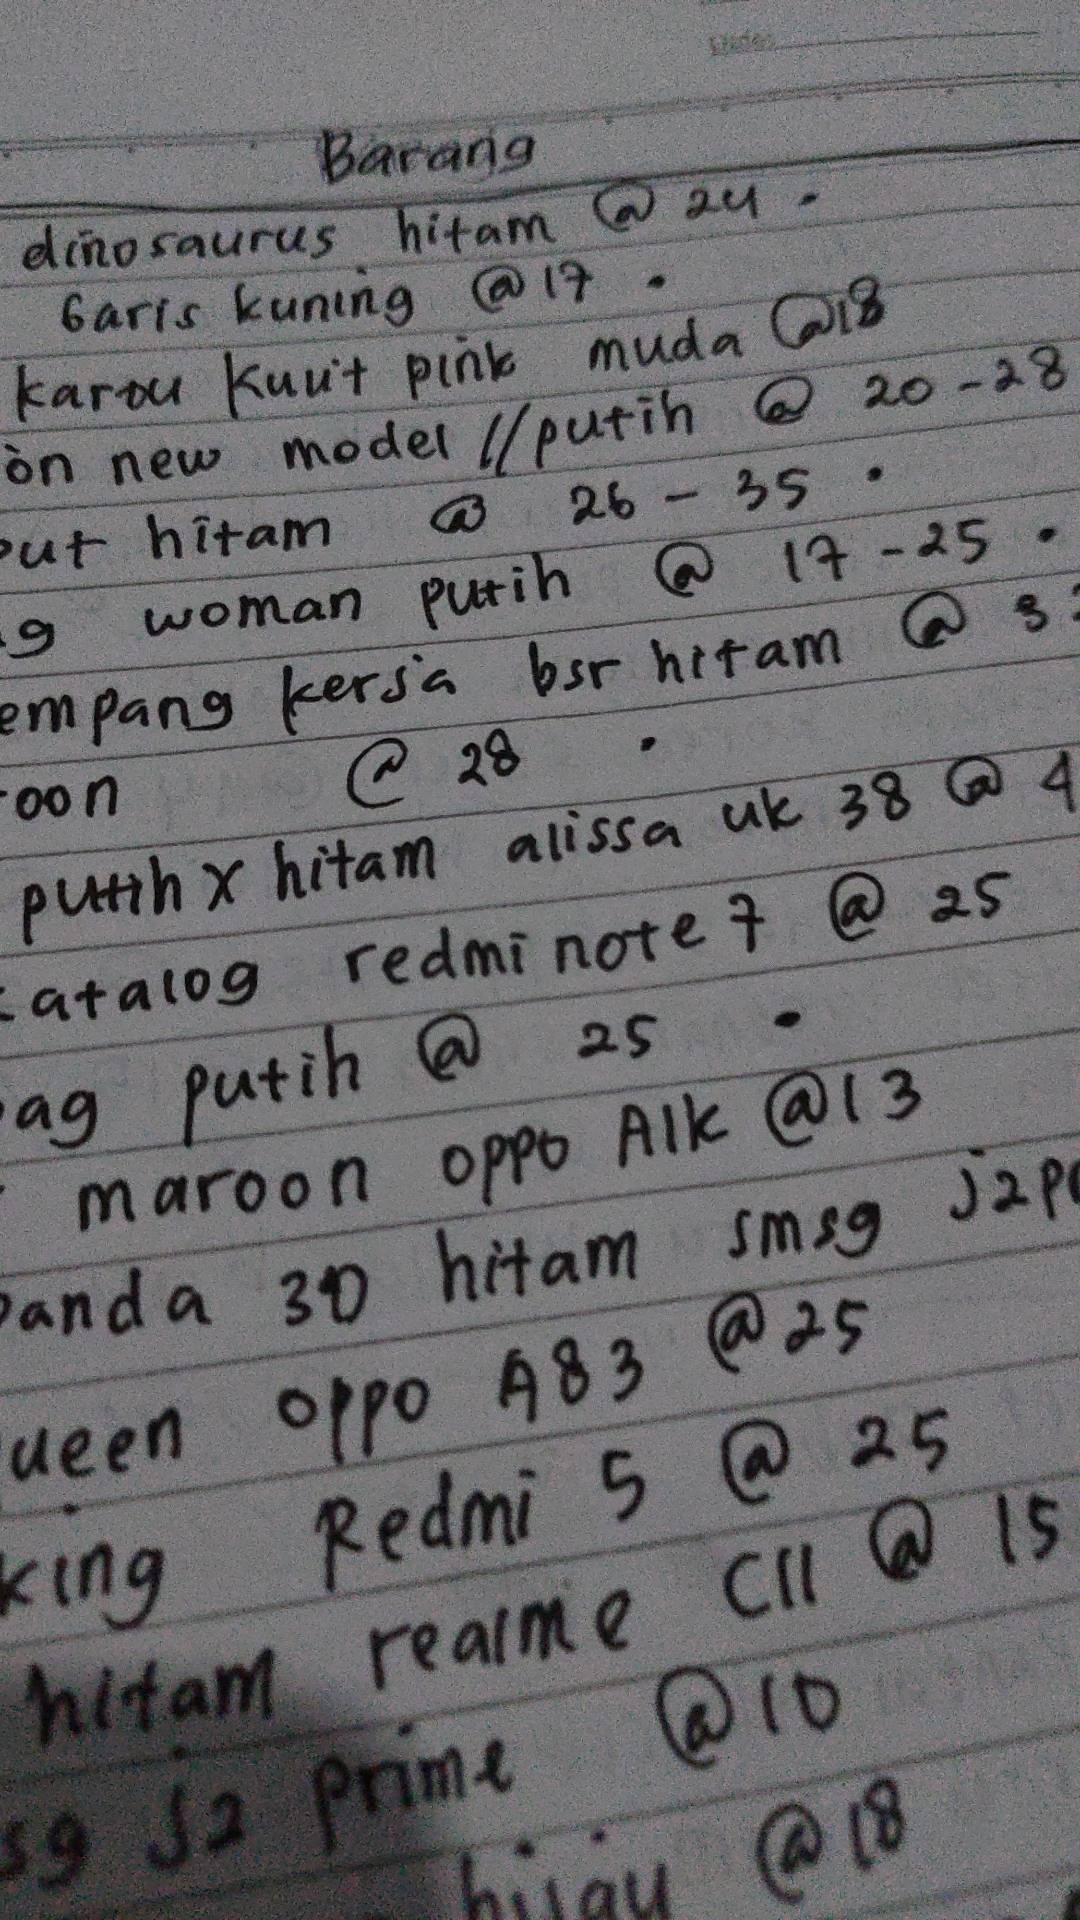 Barang
dinosaurus hitam @ 24 .
Garis kuning @ 17 .
muda @18
pink
on new model // putih @ 20 - 28
out hitam @ 26 - 35 .
g woman putih @ 17 - 25 .
empang kerja bsr hitam @ 3
oon @ 28 .
putih x hitam alissa uk 38 @ 4
catalog redmi note 7 @ 25
ag putih @ 25 .
maroon oppo A1k @ 13
panda 3D hitam smsg j2
ueen oppo A83 @ 25
king Redmi 5 @ 25
hitam realme C11 @ 15
sg J2 prime @ 10
hijau @ 18